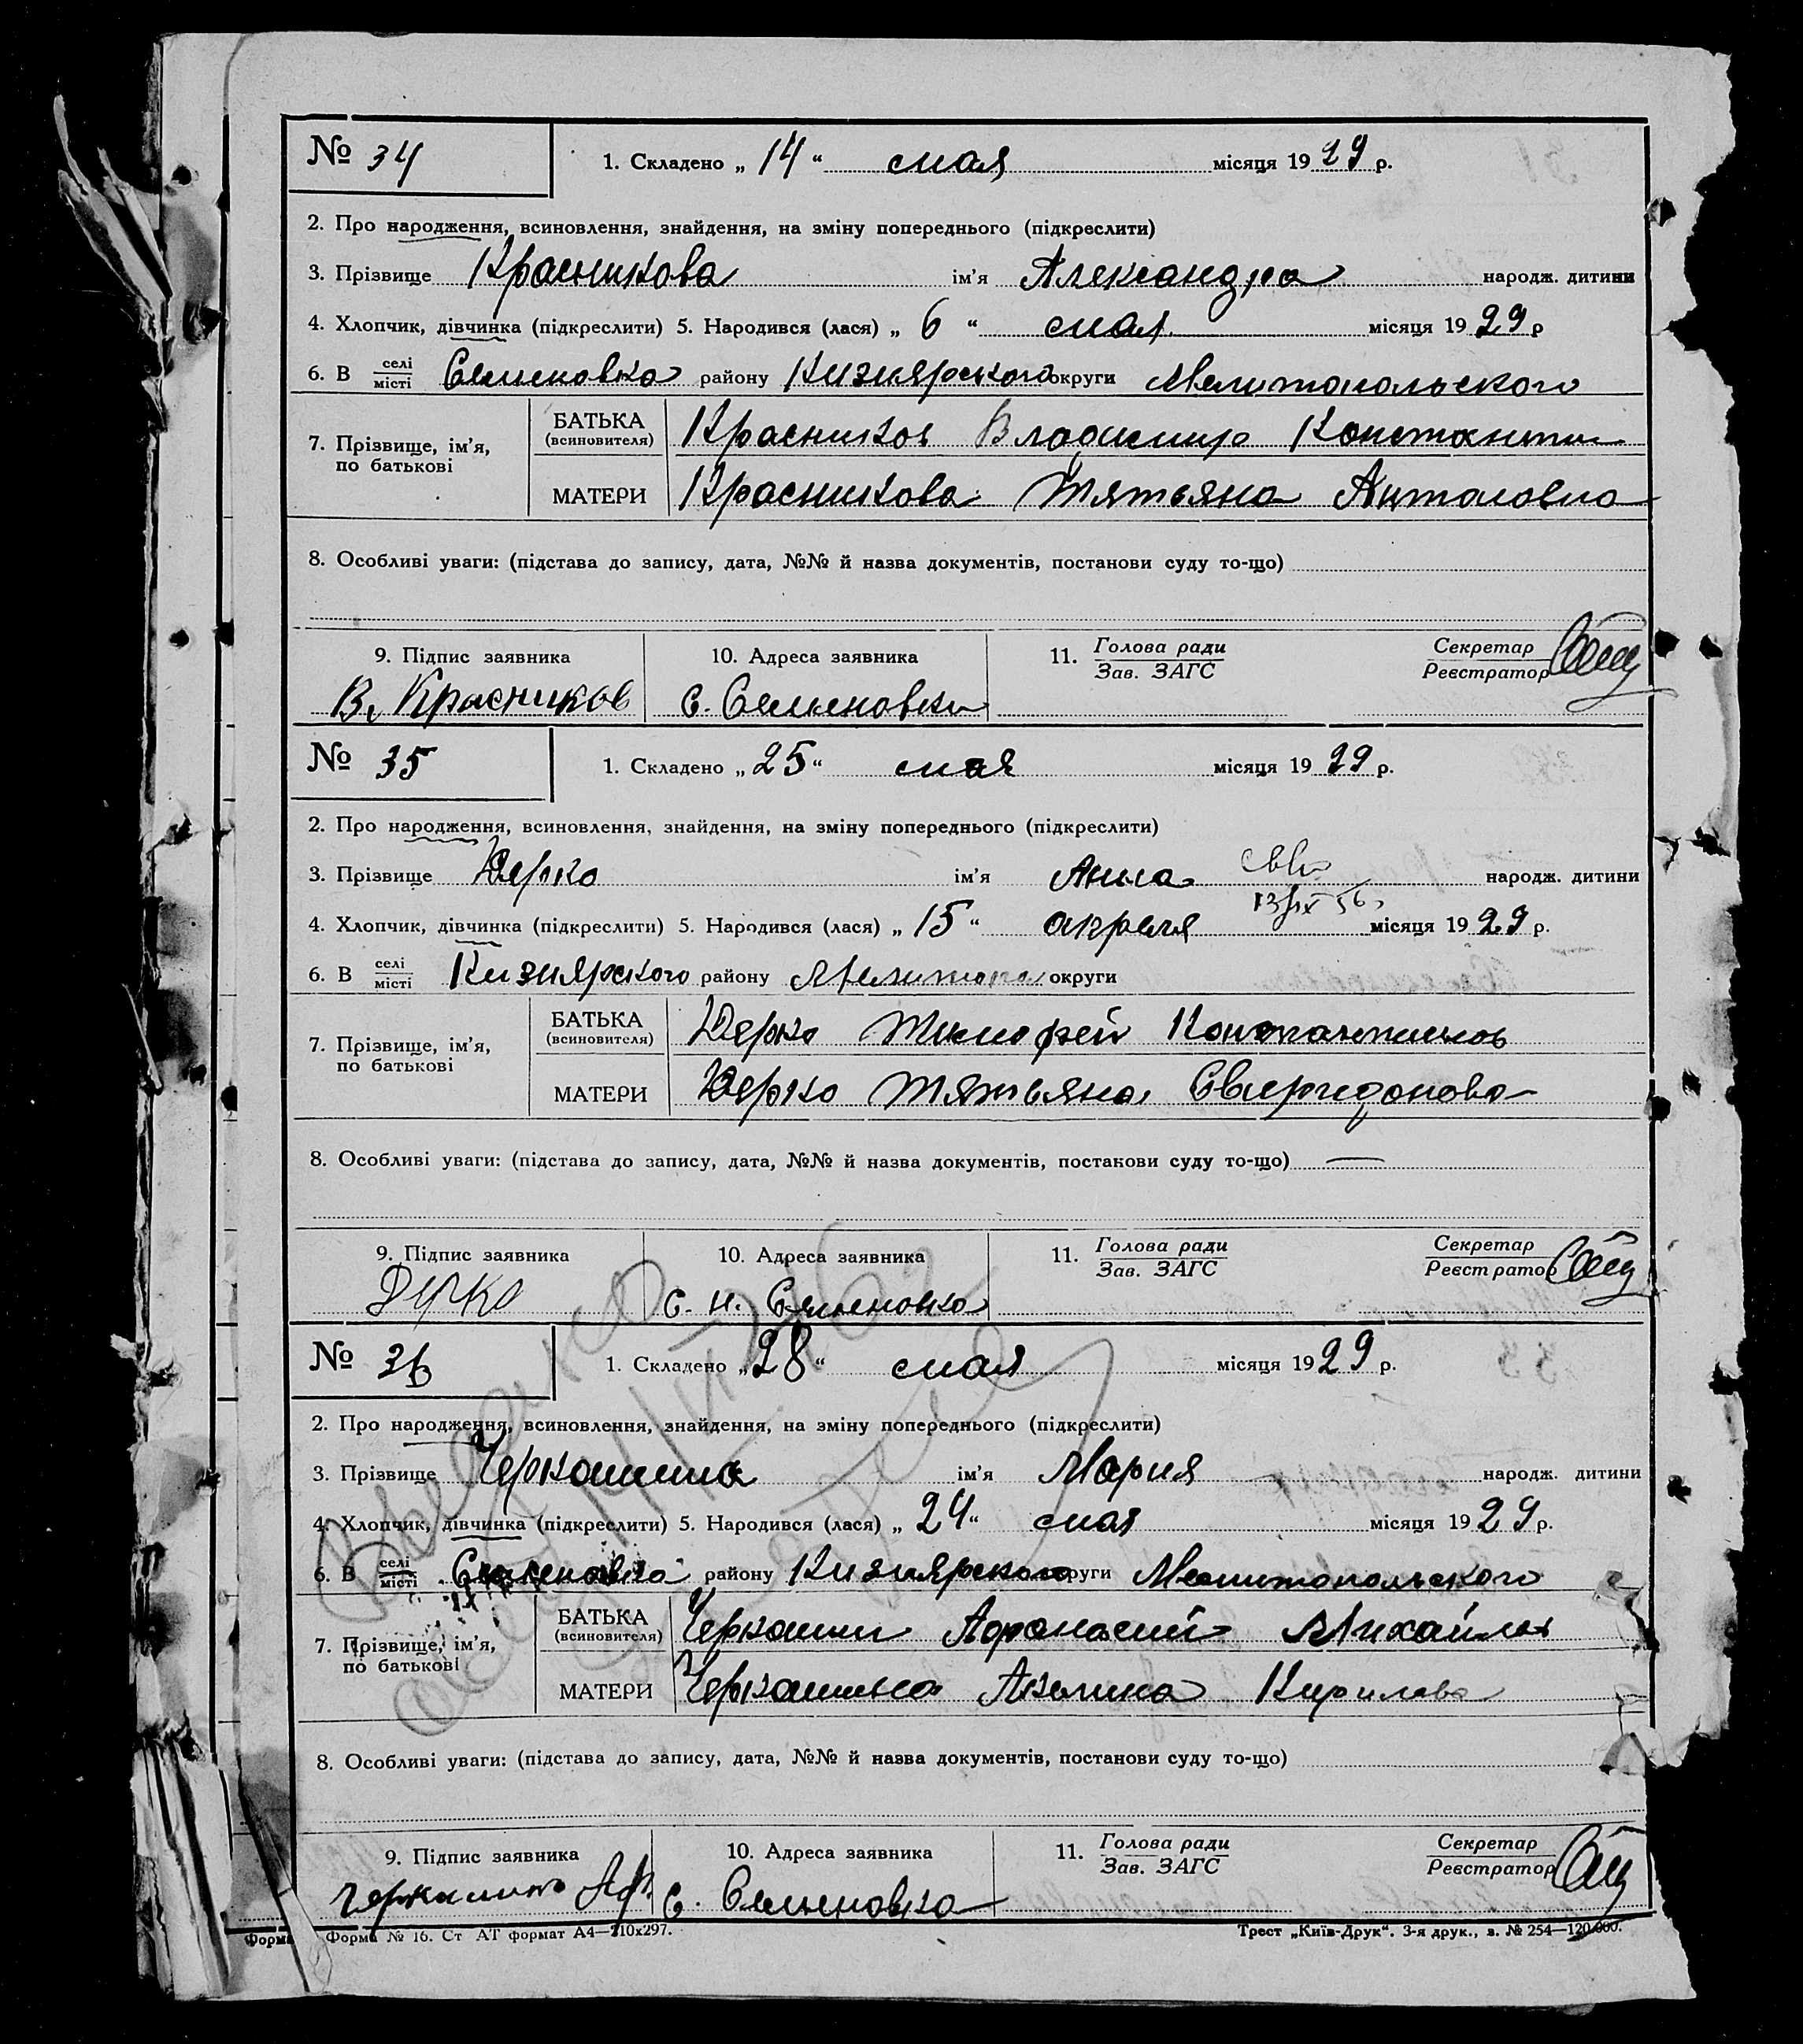 № 34
1. Складено „ 14 “ мая місяця 19 29 р.
2. Про народження, всиновлення, знайдення, на зміну попереднього (підкреслити)
3. Прізвище Красникова ім'я Александра народж. дитини
4. Хлопчик, дівчинка (підкреслити) 5. Народився (лася) „ 6 “ мая місяця 19 29 р
6. В селі/місті Семеновка району Кизиярского округи Мелитопольского
7. Прізвище, ім'я, по батькові
БАТЬКА (всиновителя) Красников Владимир Константин
МАТЕРИ Красникова Тятьяна
8. Особливі уваги: (підстава до запису, дата, №№ й назва документів, постанови суду то-що)
9. Підпис заявника 10. Адреса заявника 11. Голова ради Секретар
Зав. ЗАГС Реєстратор
В. Красников с. Семеновки
№ 35
1. Складено „ 25 “ мая місяця 19 29 р.
2. Про народження, всиновлення, знайдення, на зміну попереднього (підкреслити)
3. Прізвище Дерко ім'я Анна народж. дитини
4. Хлопчик, дівчинка (підкреслити) 5. Народився (лася) „ 15 “ апреля місяця 19 29 р.
6. В селі/місті Кизиярского району Мелитопол округи
7. Прізвище, ім'я, по батькові
БАТЬКА (всиновителя) Дерко Тимофей Константинов
МАТЕРИ Дерко Тятьяна Свиридонова
8. Особливі уваги: (підстава до запису, дата, №№ й назва документів, постанови суду то-що) —
9. Підпис заявника 10. Адреса заявника 11. Голова ради Секретар
Зав. ЗАГС Реєстратор
Дерко с. н. Семеновка
№ 36
1. Складено „ 28 “ мая місяця 19 29 р.
2. Про народження, всиновлення, знайдення, на зміну попереднього (підкреслити)
3. Прізвище Черкашина ім'я Мария народж. дитини
4. Хлопчик, дівчинка (підкреслити) 5. Народився (лася) „ 24 “ мая місяця 19 29 р.
6. В селі/місті Семеновка району Кизиярского округи Мелитопольского
7. Прізвище, ім'я, по батькові
БАТЬКА (всиновителя) Черкашин Афонасий Михайлов
МАТЕРИ Черкашина Акулина Кирилова
8. Особливі уваги: (підстава до запису, дата, №№ й назва документів, постанови суду то-що)
9. Підпис заявника 10. Адреса заявника 11. Голова ради Секретар
Зав. ЗАГС Реєстратор
Черкашин Аф. с. Семеновка
Форма Форма № 16. Ст АТ формат А4—210х297. Трест „Київ-Друк“. 3-я друк., з. № 254—120.000.